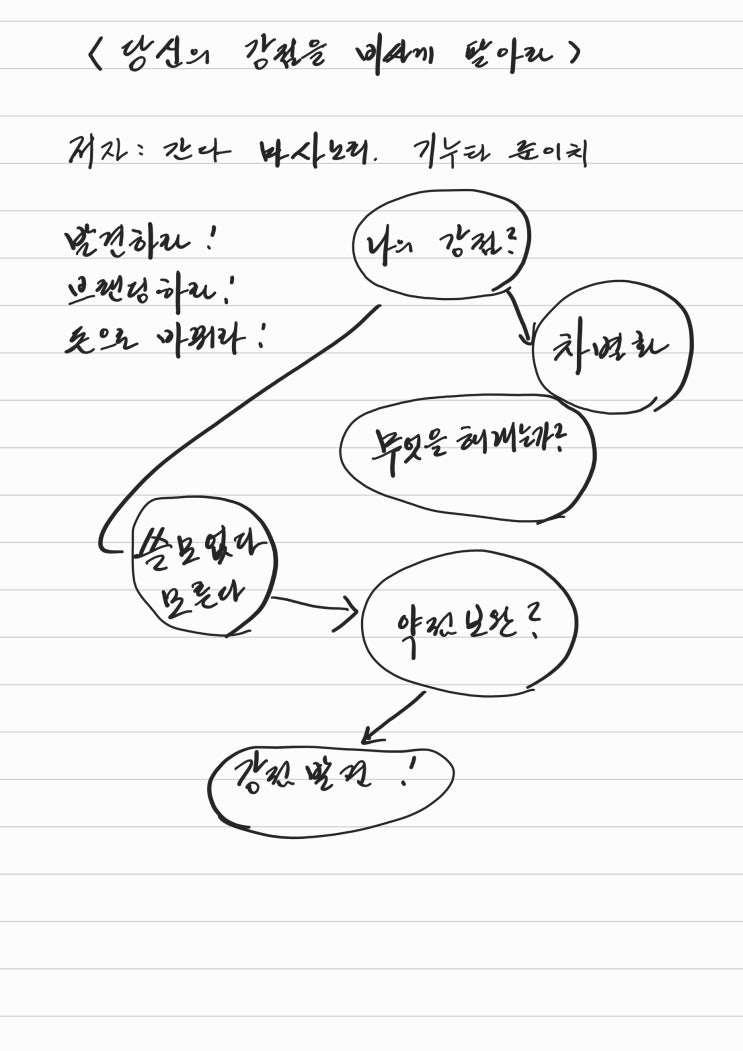 < 당신의 강점을 비싸게 팔아라 >
저자: 간다 마사노리. 기누타 쥰이치
발견하라!
브랜딩하라!
돈으로 바꿔라!
나의 강점?
차별화
무엇을 해내는가?
쓸모없다
모른다
약점보완?
강점발견!